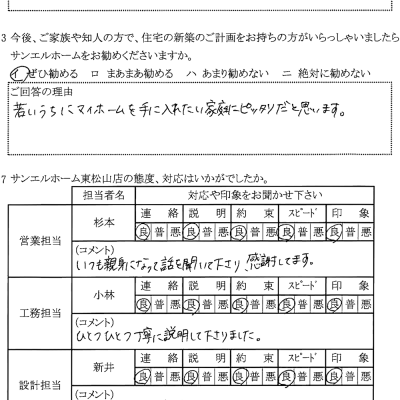 3 今後、ご家族や知人の方で、住宅の新築のご計画をお持ちの方がいらっしゃいましたら
サンエルホームをお勧めくださいますか。
イ ぜひ勧める ロ まあまあ勧める ハ あまり勧めない ニ 絶対に勧めない
ご回答の理由
若いうちにマイホームを手に入れたい家庭にピッタリだと思います。
7 サンエルホーム東松山店の態度、対応はいかがでしたか。
担当者名 対応や印象をお聞かせ下さい
営業担当 杉本 連絡 説明 約束 スピード 印象
良 普 悪 良 普 悪 良 普 悪 良 普 悪 良 普 悪
(コメント)
いつも親身になって話を聞いて下さり、感謝してます。
工務担当 小林 連絡 説明 約束 スピード 印象
良 普 悪 良 普 悪 良 普 悪 良 普 悪 良 普 悪
(コメント)
ひとつひとつ丁寧に説明して下さりました。
設計担当 新井 連絡 説明 約束 スピード 印象
良 普 悪 良 普 悪 良 普 悪 良 普 悪 良 普 悪
(コメント)